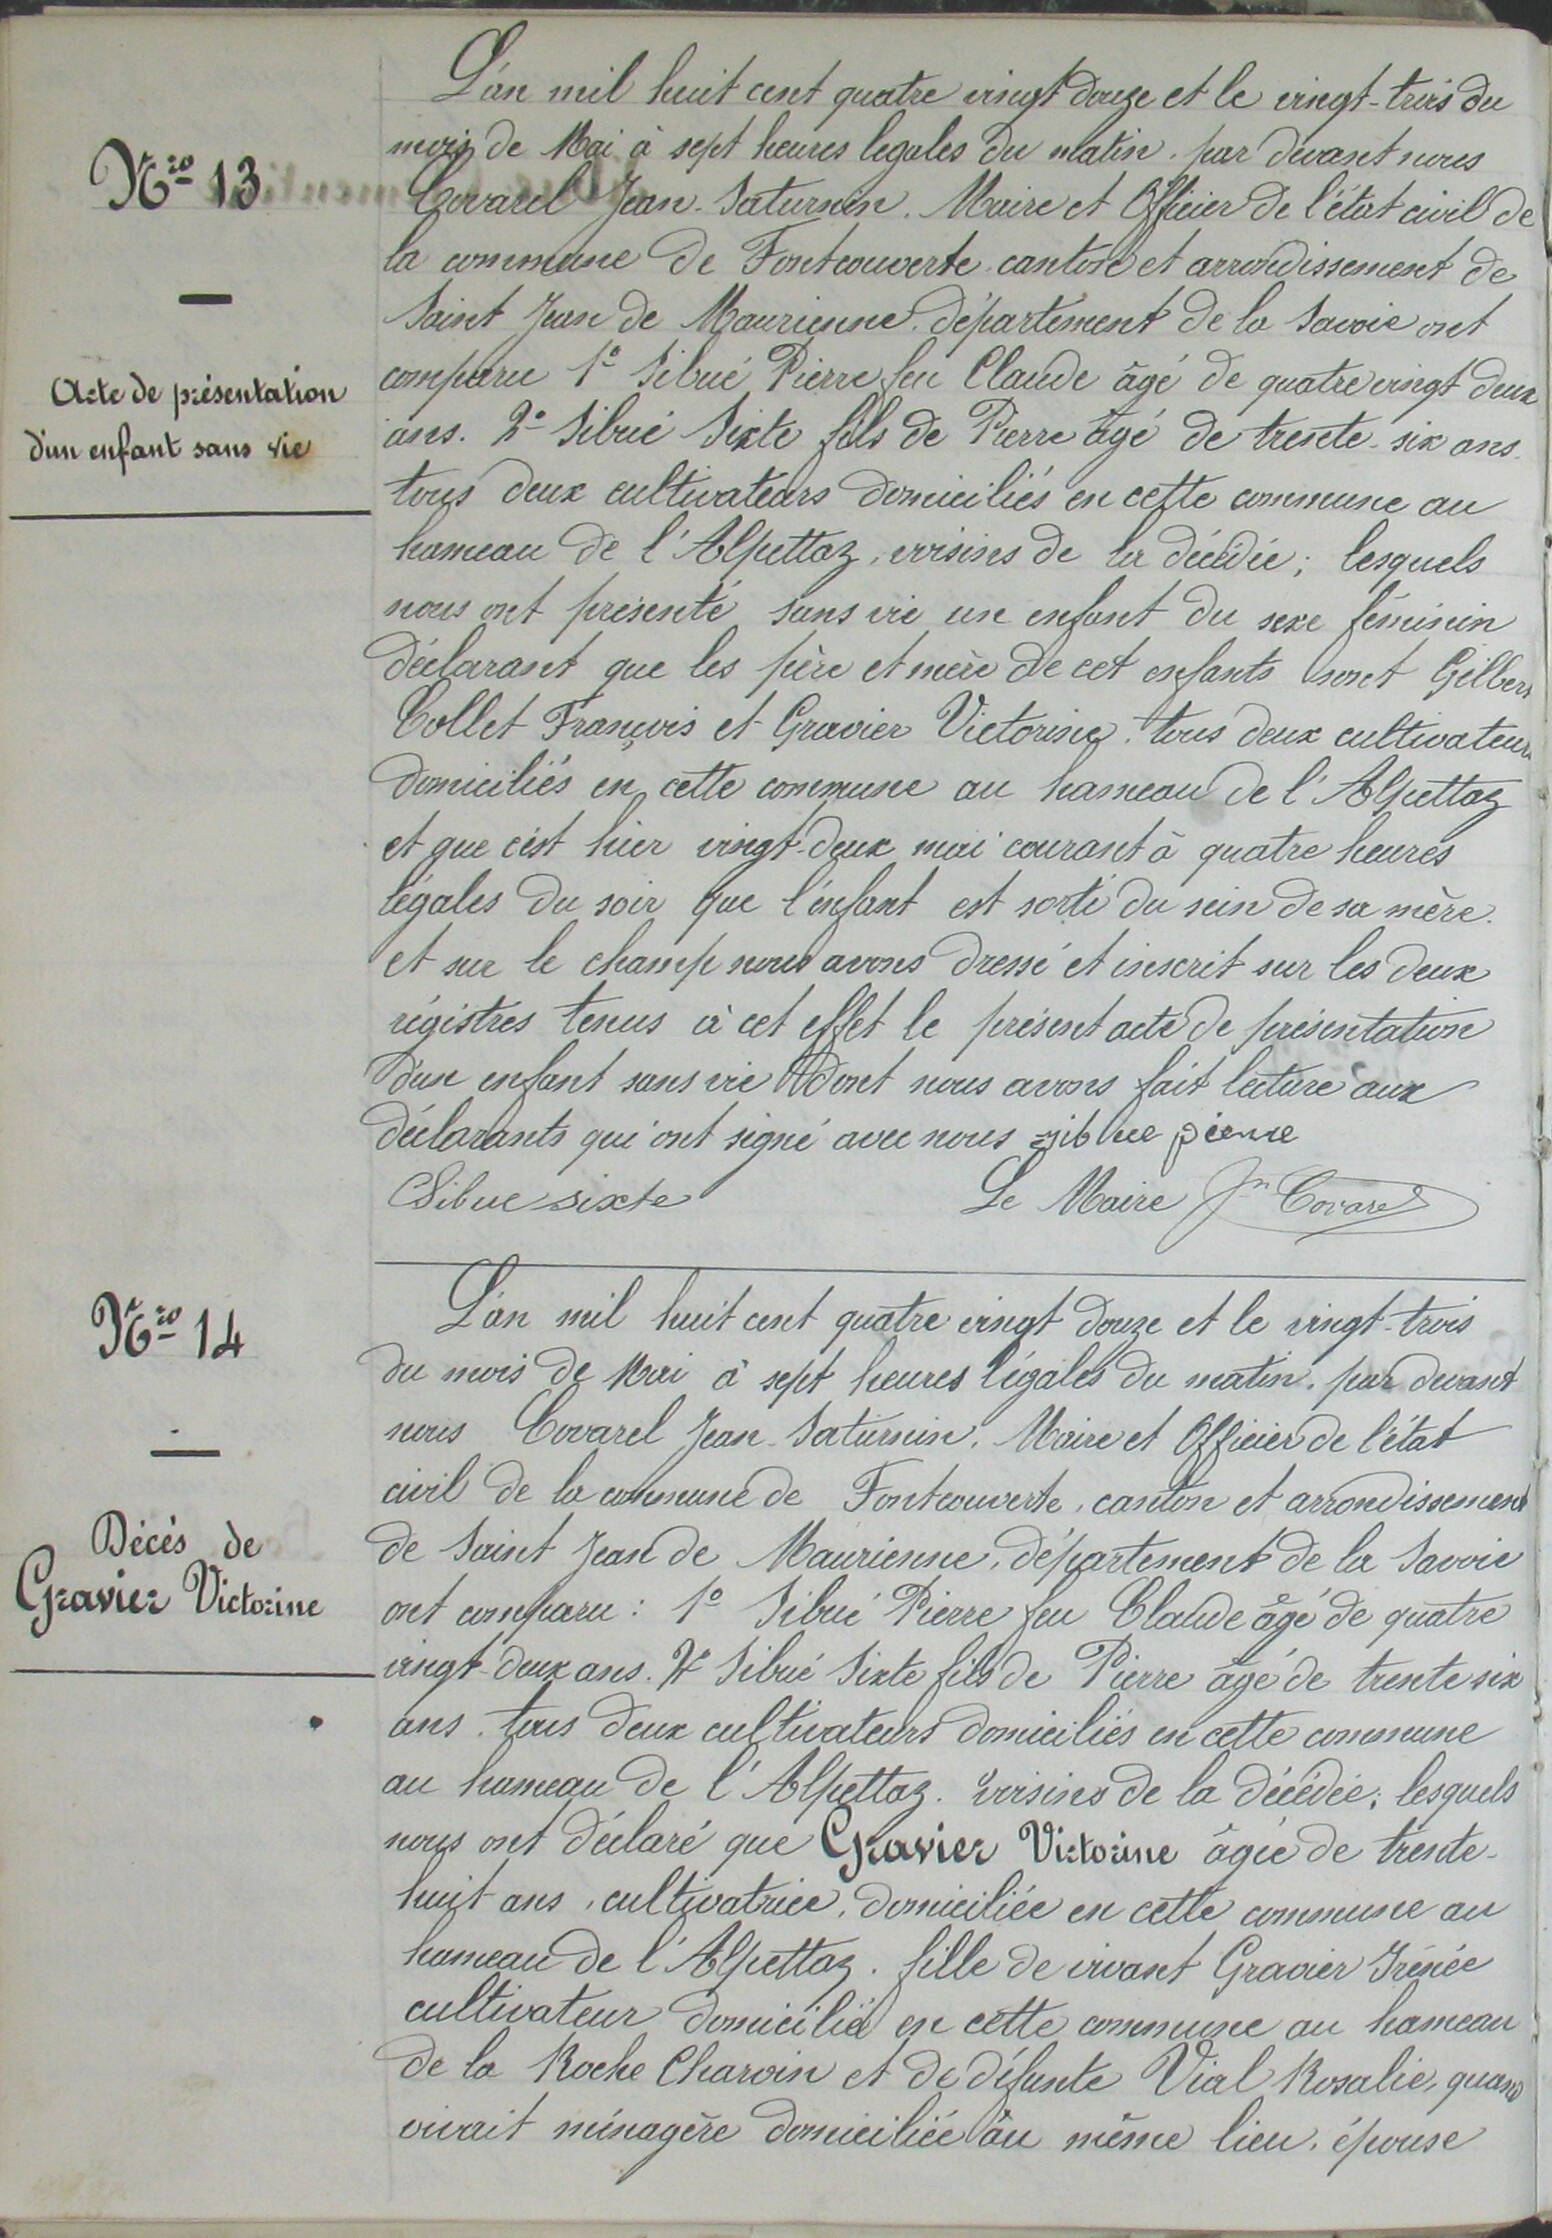 Nro 13
Acte de présentation
d'un enfant sans vie
L'an mil huit cent quatre vingt douze et le vingt-trois du
mois de Mai à sept heures legales du matin. par devant nous
Covarel Jean-Saturnin. Maire et Officier de l'état civil de
la commune de Fontcouverte canton et arrondissement de
Saint Jean de Maurienne. département de la Savoie ont
comparu 1° Sibué Pierre feu Claude âgé de quatre vingt deux
ans. 2° Sibué Sixte fils de Pierre âgé de trente-six ans.
tous deux cultivateurs domiciliés en cette commune au
hameau de l'Alpettaz, voisins de la décédée; lesquels
nous ont présenté sans vie un enfant du sexe féminin
déclarant que les père et mère de cet enfants sont Gilbert
Collet François et Gravier Victorine. tous deux cultivateurs
domiciliés en cette commune au hameau de l'Alpettaz
et que c'est hier vingt-deux mai courant à quatre heures
légales du soir que l'enfant est sorti du sein de sa mère.
et sur le champ nous avons dressé et inscrit sur les deux
régistres tenus à cet effet le présent acte de présentation
d'un enfant sans vie dont nous avons fait lecture aux
déclarants qui ont signé avec nous sibue pierre
Sibue sixte Le Maire Jn Covarel
Nro 14
Décès de
Gravier Victorine
L'an mil huit cent quatre vingt douze et le vingt-trois
du mois de Mai à sept heures légales du matin. par devant
nous Covarel Jean-Saturnin. Maire et Officier de l'état
civil de la commune de Fontcouverte, canton et arrondissement
de Saint Jean de Maurienne, département de la Savoie
ont comparu: 1° Sibué Pierre feu Claude âgé de quatre
vingt-deux ans. 2° Sibué Sixte fils de Pierre âgé de trente six
ans. tous deux cultivateurs domiciliés en cette commune
au hameau de l'Alpettaz. voisins de la décédée; lesquels
nous ont déclaré que Gravier Victorine âgée de trente-
huit ans, cultivatrice, domiciliée en cette commune au
hameau de l'Alpettaz. fille de vivant Gravier Irénée
cultivateur domicilié en cette commune au hameau
de la Roche Charvin et de défunte Vial Rosalie, quand
vivait ménagère domiciliée au même lieu. épouse